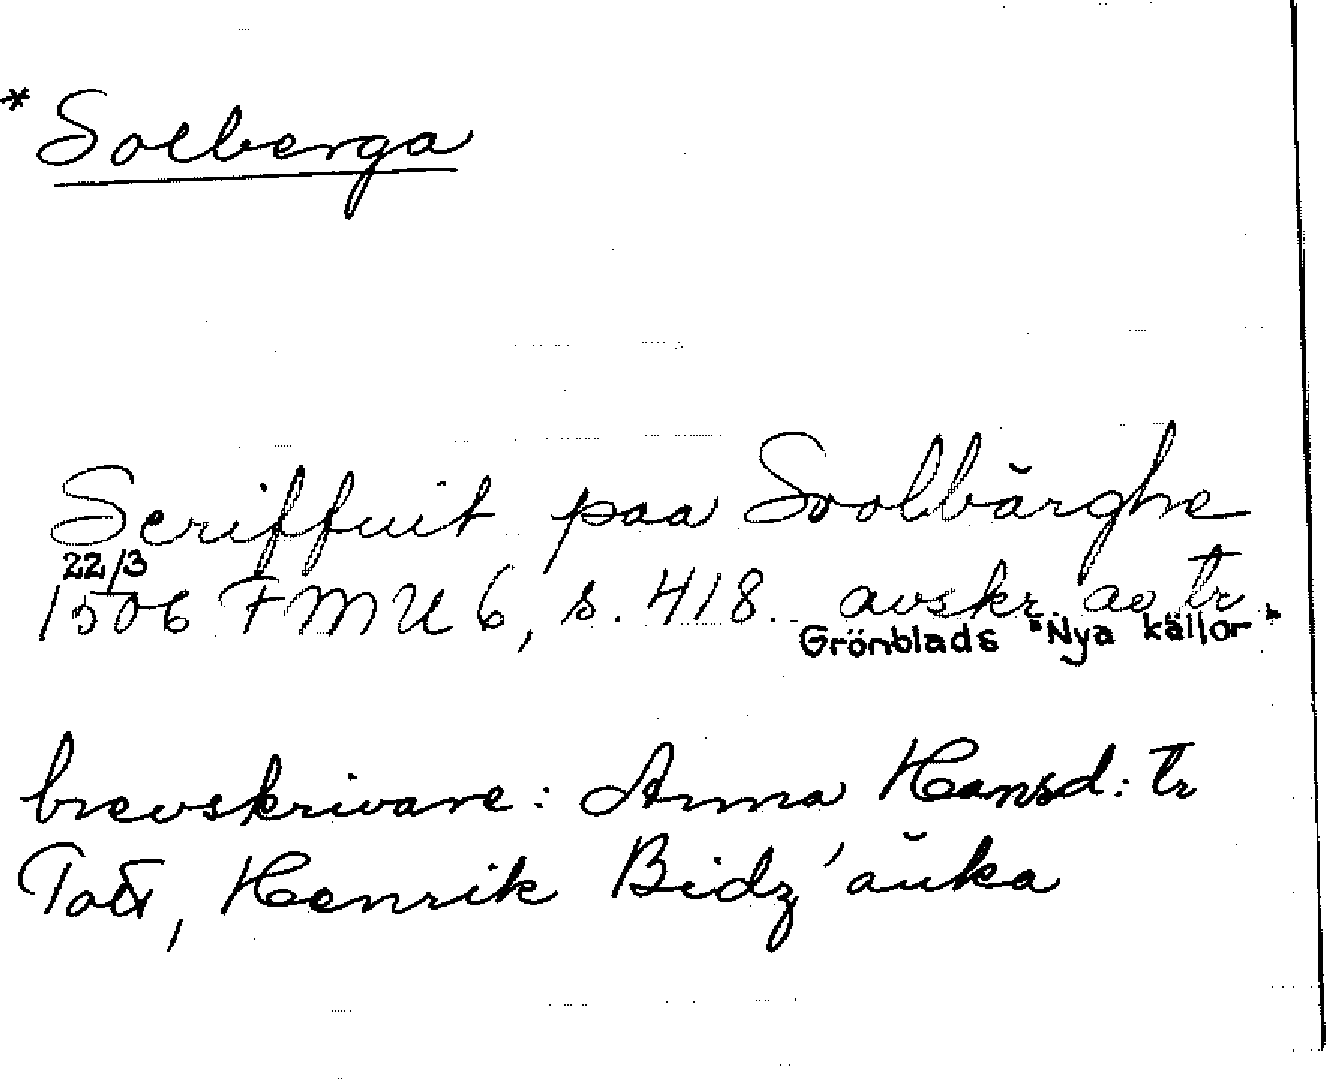 *Solberga
Scriffuit paa Soolbärghe
22/3
1506 FMU 6, s. 418. avskr. av tr.
Grönblads "Nya källor"
brevskrivare: Anna Hansd:tr
Tott, Henrik Bidz' änka